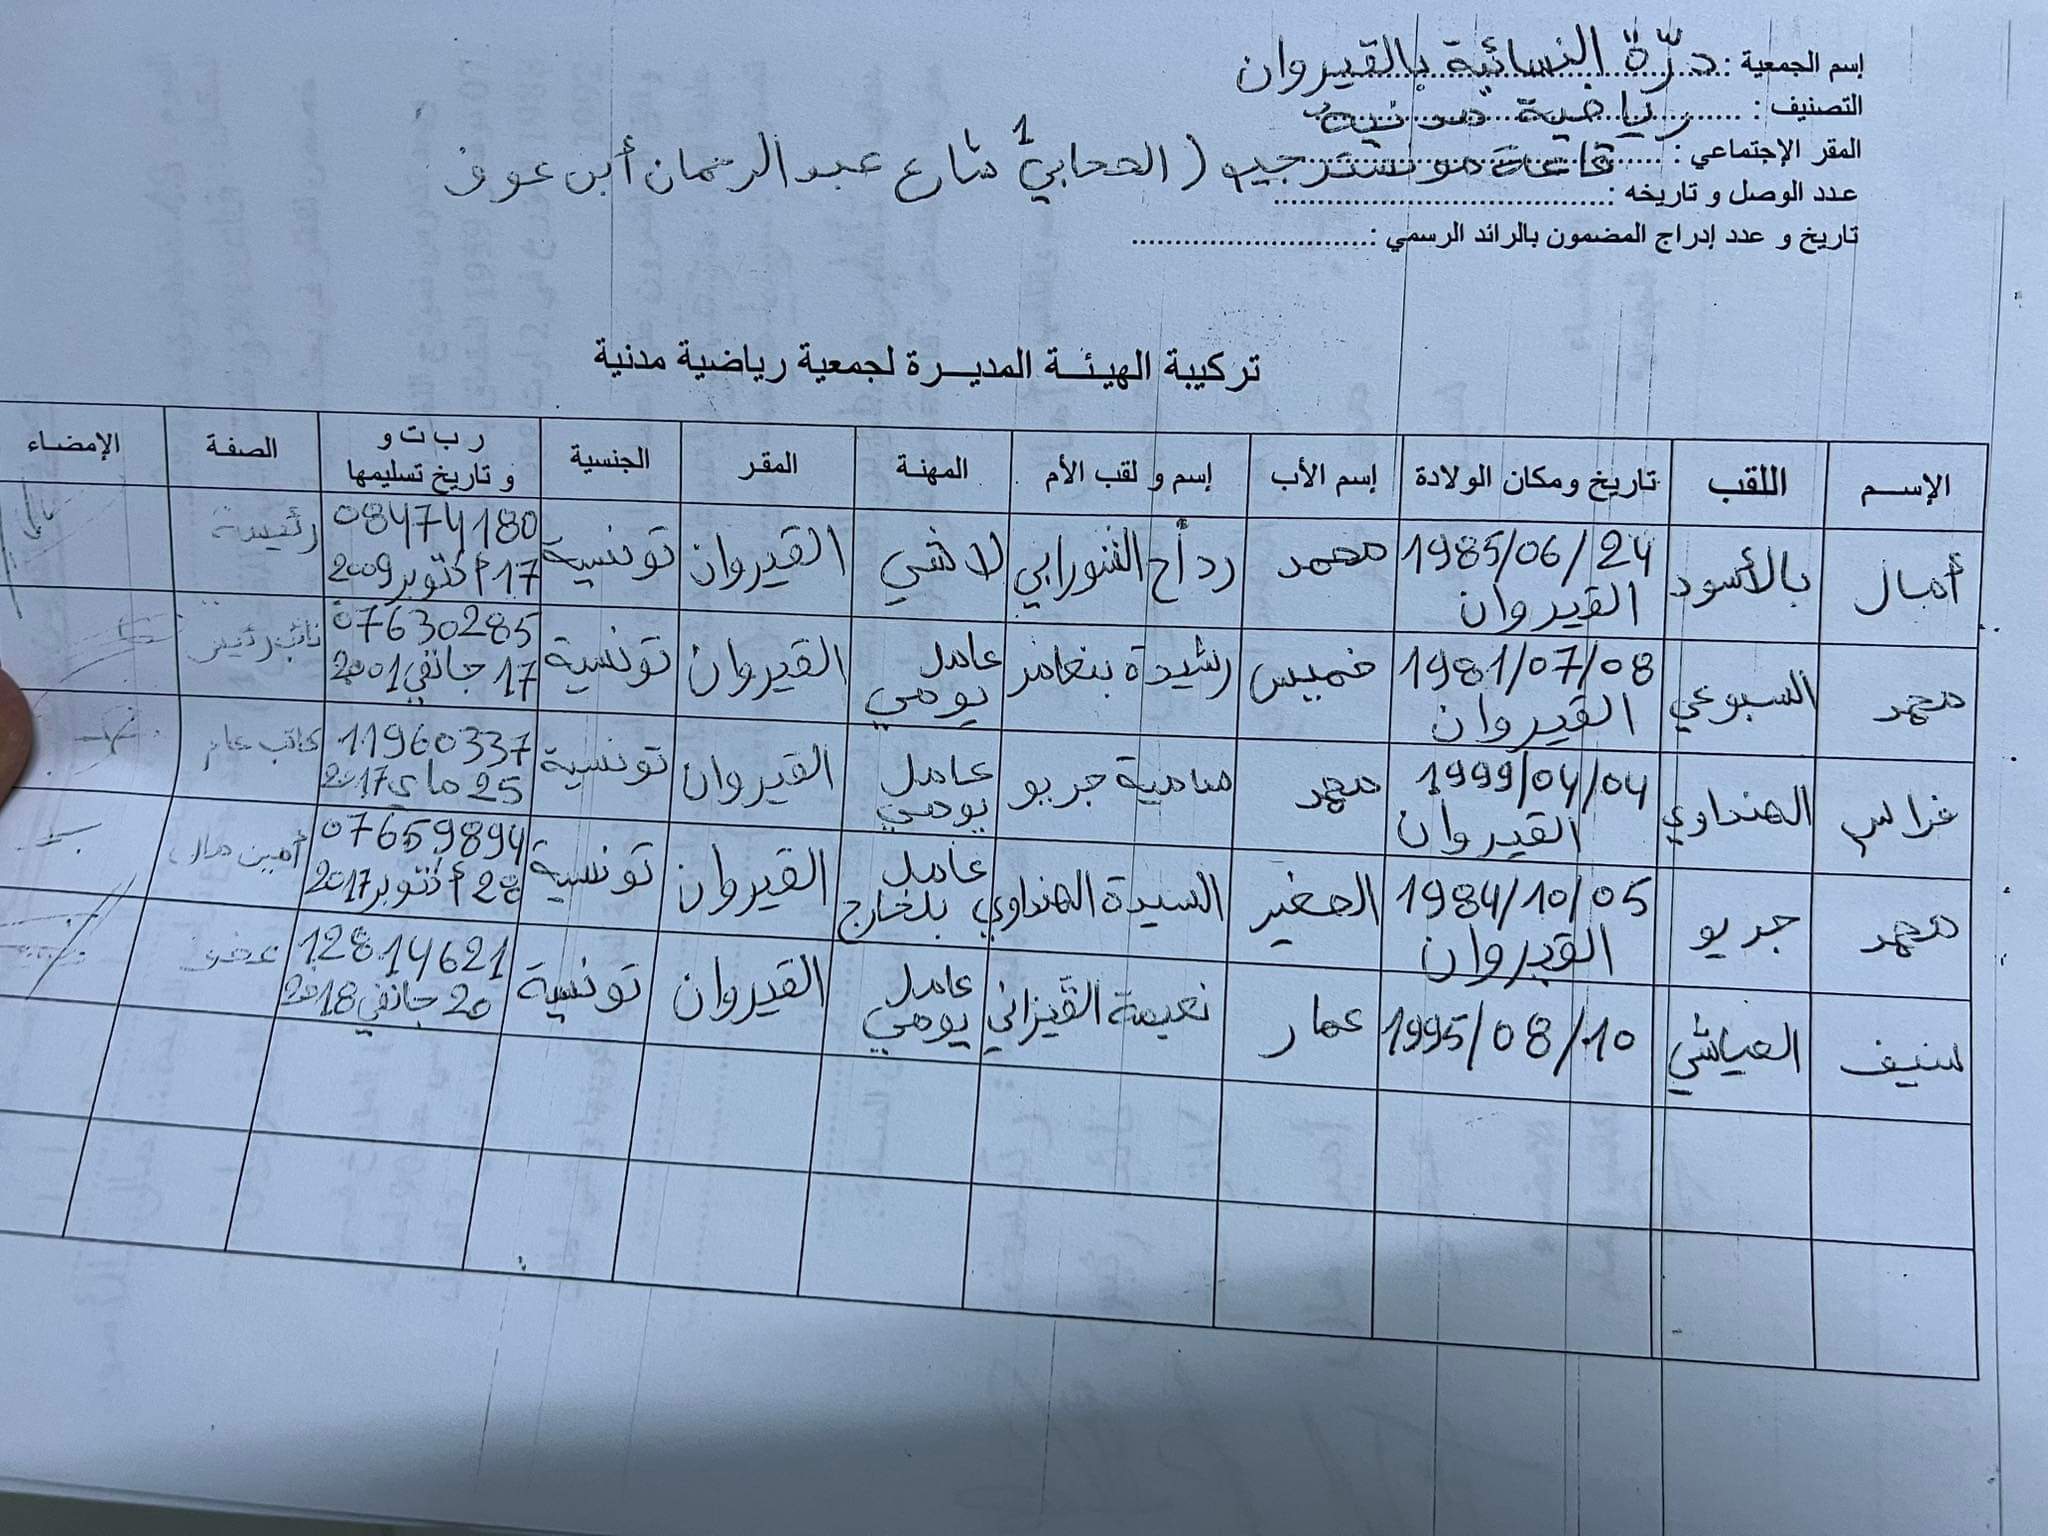 إسم الجمعية : درّة النسائية بالقيروان
التصنيف : رياضية مدنية
المقر الإجتماعي : قاعة الصحابي 1 شارع عبد الرحمان أبن عوف
عدد الوصل و تاريخه :
تاريخ و عدد إدراج المضمون بالرائد الرسمي :
تركيبة الهيئة المديرة لجمعية رياضية مدنية
الإسم اللقب تاريخ ومكان الولادة إسم الأب إسم و لقب الأم المهنة المقر الجنسية ر ب ت و و تاريخ تسليمها الصفة الإمضاء
أمال بالأسود 1985/06/24 القيروان محمد رداح الشورابي لا شي القيروان تونسية 08474180 17 أكتوبر 2009 رئيسة
محمد السبوعي 1981/07/08 القيروان خميس رشيدة بنعامر عامل يومي القيروان تونسية 07630285 17 جانفي 2001 نائب رئيس
فراس الهنداوي 1999/04/04 القيروان محمد سامية جريو عامل يومي القيروان تونسية 11960337 25 ماي 2017 كاتب عام
محمد جريو 1984/10/05 القيروان الصغير السيدة الهنداوي عامل بلخارج القيروان تونسية 07659894 28 أكتوبر 2017 أمين مال
سنيف العياشي 1995/08/10 عمار نعيمة القيزاني عامل يومي القيروان تونسية 12814621 20 جانفي 2018 عضو